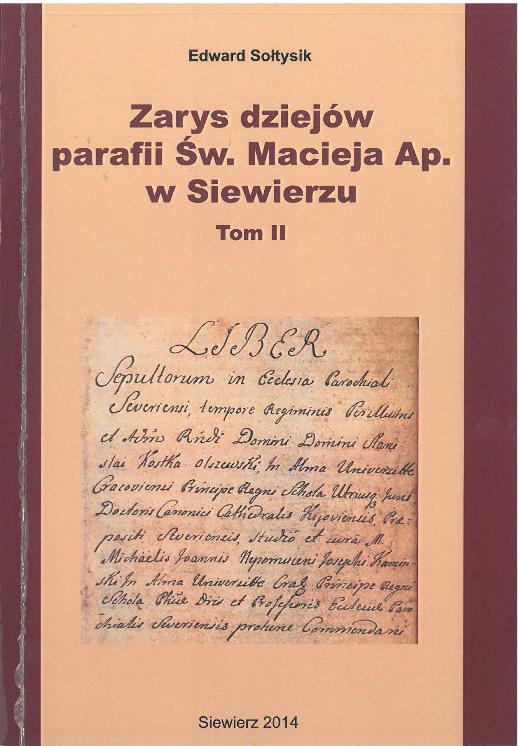 Edward Sołtysik
Zarys dziejów
parafii Św. Macieja Ap.
w Siewierzu
Tom II
LIBER
Sepultorum in Ecclesia Parochial
Severiensi, tempore Regiminis Perillustris
et Adm Rndi Domini Domini Stani
slai Kostka Olszewski, In Alma Universitte
Cracoviensi Principe Regni Schola Utriusq Juris
Doctoris Canonici Cathedralis Kijoviensis, Præ-
positi Severiensis, studio et cura M
Michaelis Joannis Nepomuceni Josephi Kamin-
ski In Alma Universitte Crac Principe Regni
Schola Phiæ Dris et Professoris Ecclesiæ Paro
chialis Severiensis protunc Commendarii
Siewierz 2014